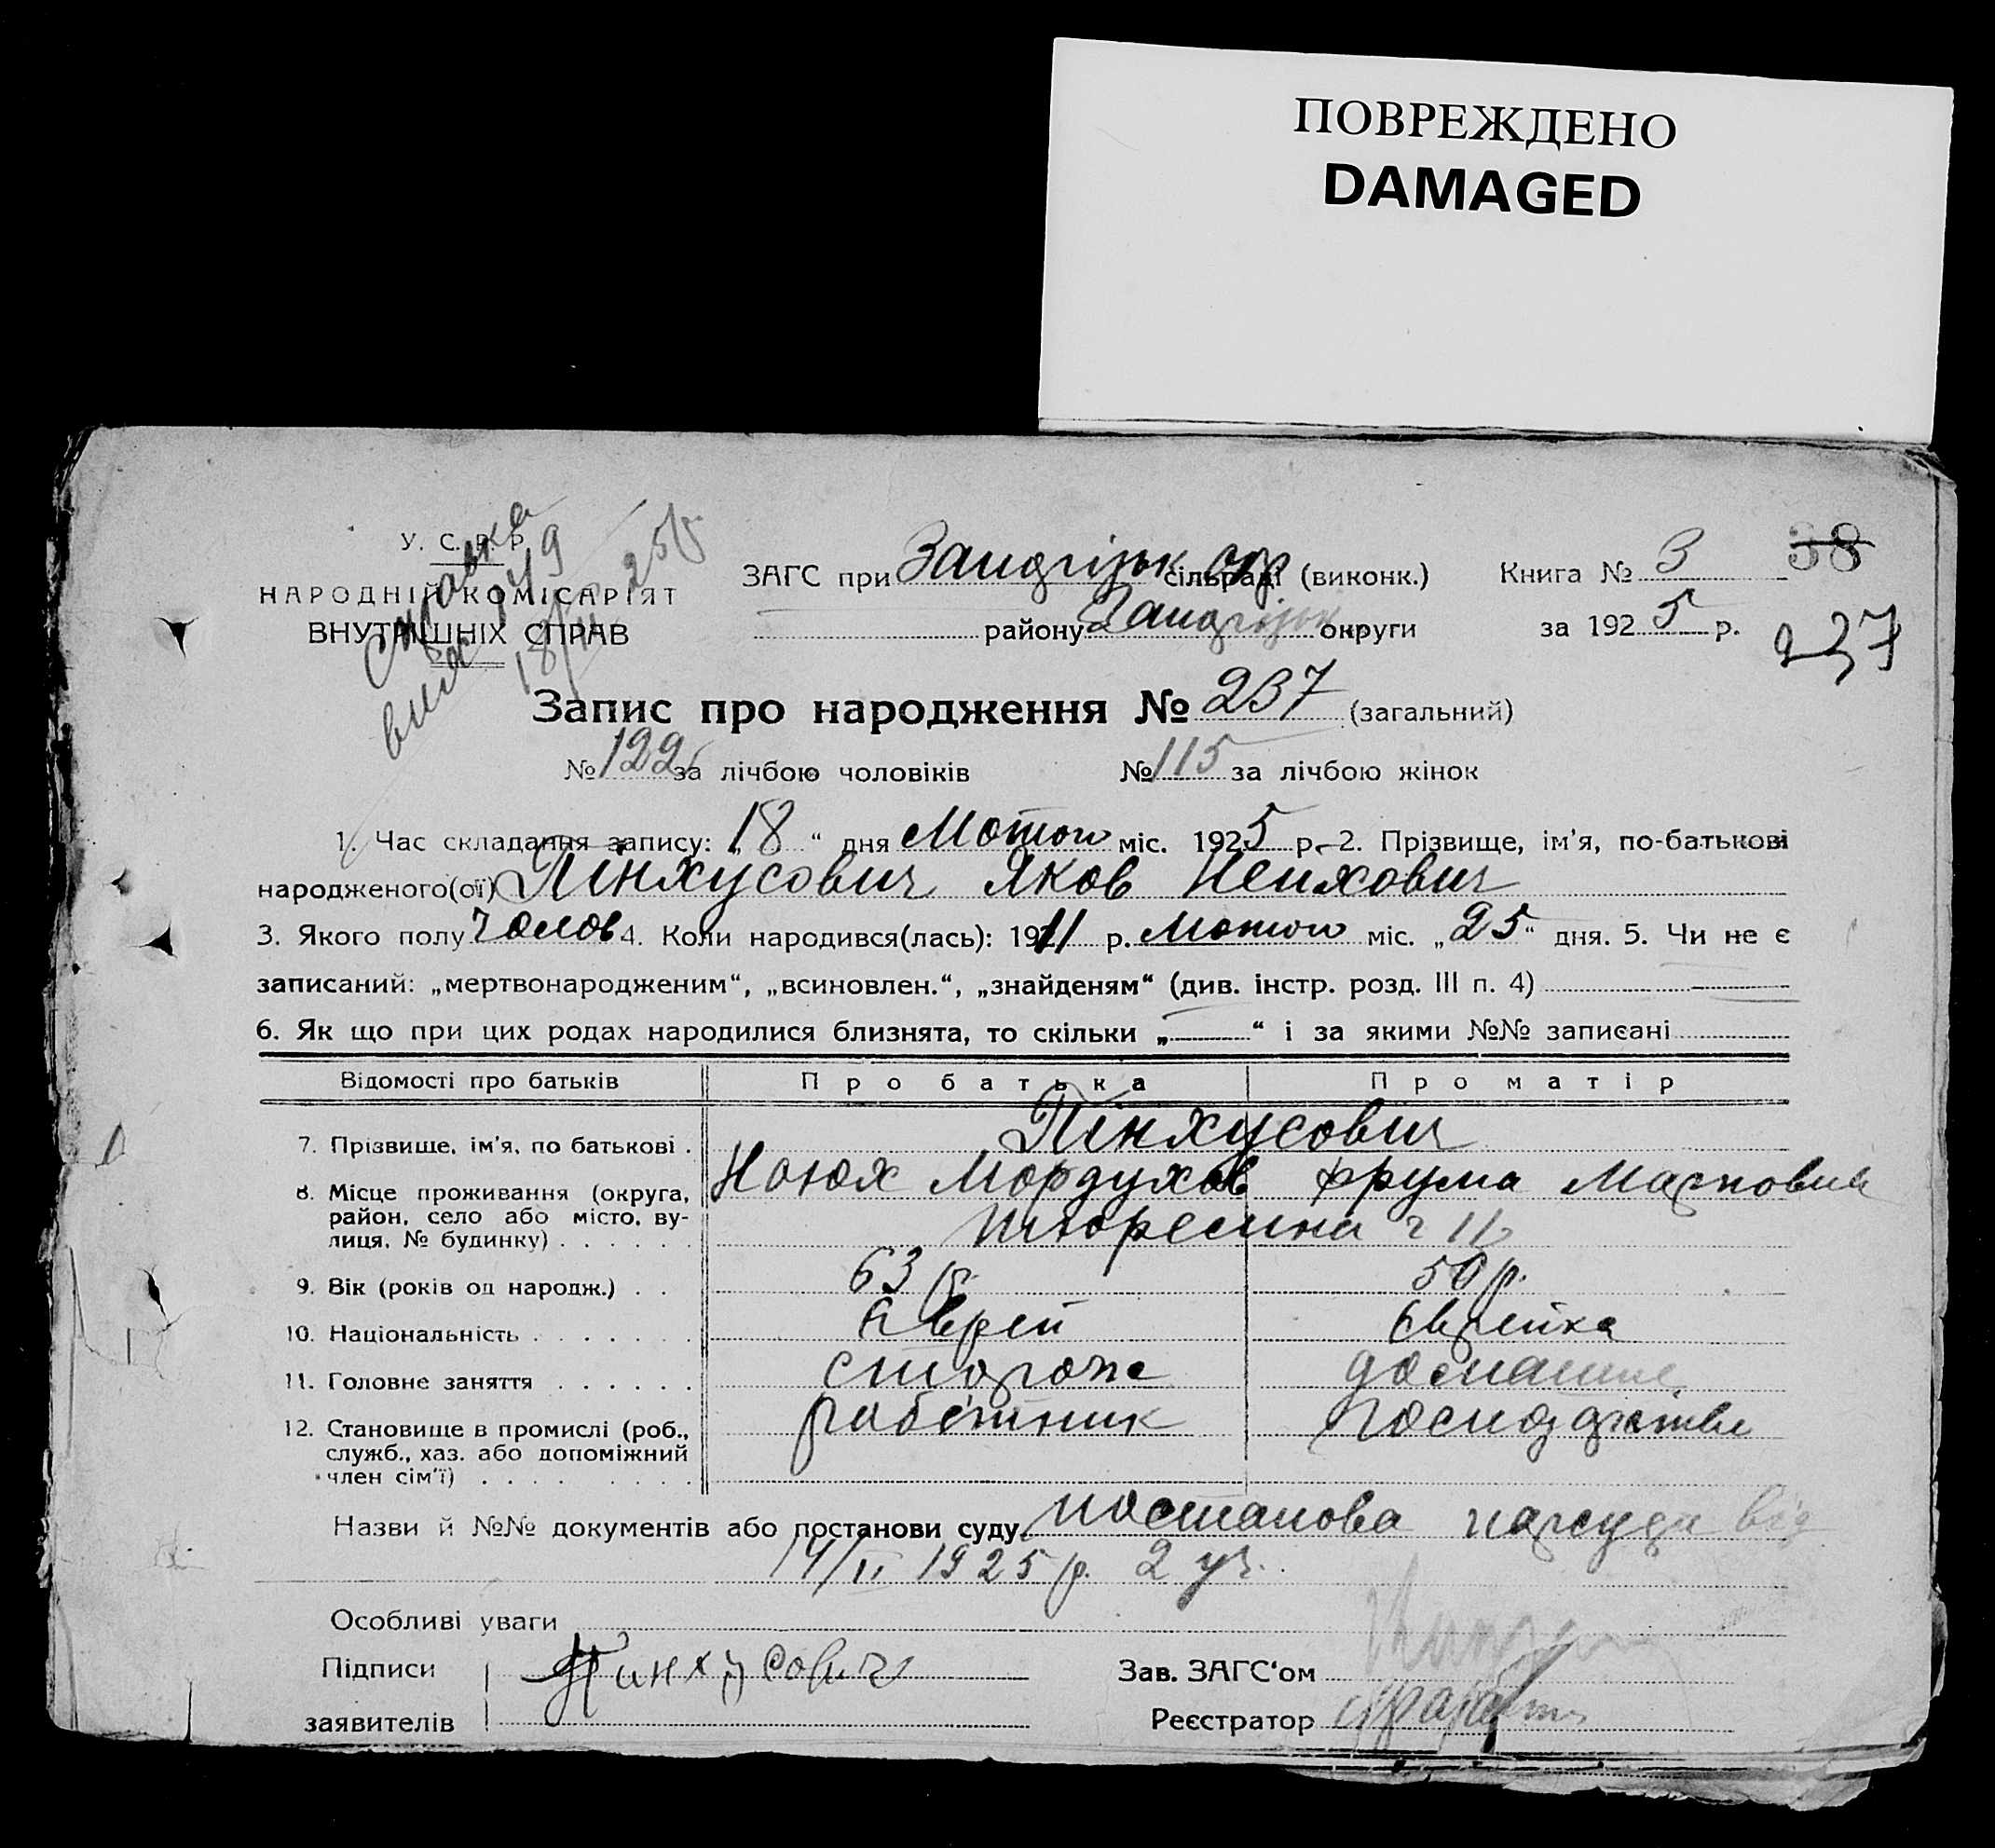 ПОВРЕЖДЕНО
DAMAGED
У. С. Р. Р.
НАРОДНІЙ КОМІСАРІЯТ
ВНУТРІШНІХ СПРАВ
Справка
18/II 25р.
ЗАГС при сільраді (виконк.)
району округи
Книга № 3
38
за 1925 р.
237
Запис про народження № 237 (загальний)
№ 122 за лічбою чоловіків № 115 за лічбою жінок
1. Час складання запису: „18“ дня Лютого міс. 1925 р. 2. Прізвище, ім'я, по-батькові
народженого(ої) Пінхусович Яков
3. Якого полу Чолов 4. Коли народився(лась): 1911 р. Лютого міс. „25“ дня. 5. Чи не є
записаний: „мертвонародженим“, „всиновлен.“, „знайденям“ (див. інстр. розд. III п. 4)
6. Як що при цих родах народилися близнята, то скільки „—“ і за якими №№ записані
Відомості про батьків Про батька Про матір
7. Прізвище, ім'я, по батькові . Пінхусович
8. Місце проживання (округа, район, село або місто, вулиця, № будинку) . . . . . .
Мордухов Фрума
9. Вік (років од народж.) . . 63 р. 50 р.
10. Національність . . . . . . . Єврей Єврейка
11. Головне заняття . . . . . . сторож домашнє
12. Становище в промислі (роб., служб., хаз. або допоміжний член сім'ї) . . . . . . . робітник
Назви й №№ документів або постанови суду постанова нарсуда від
14/II 1925 р. 2 уч.
Особливі уваги
Підписи Пинхусович Зав. ЗАГС'ом
заявителів Реєстратор